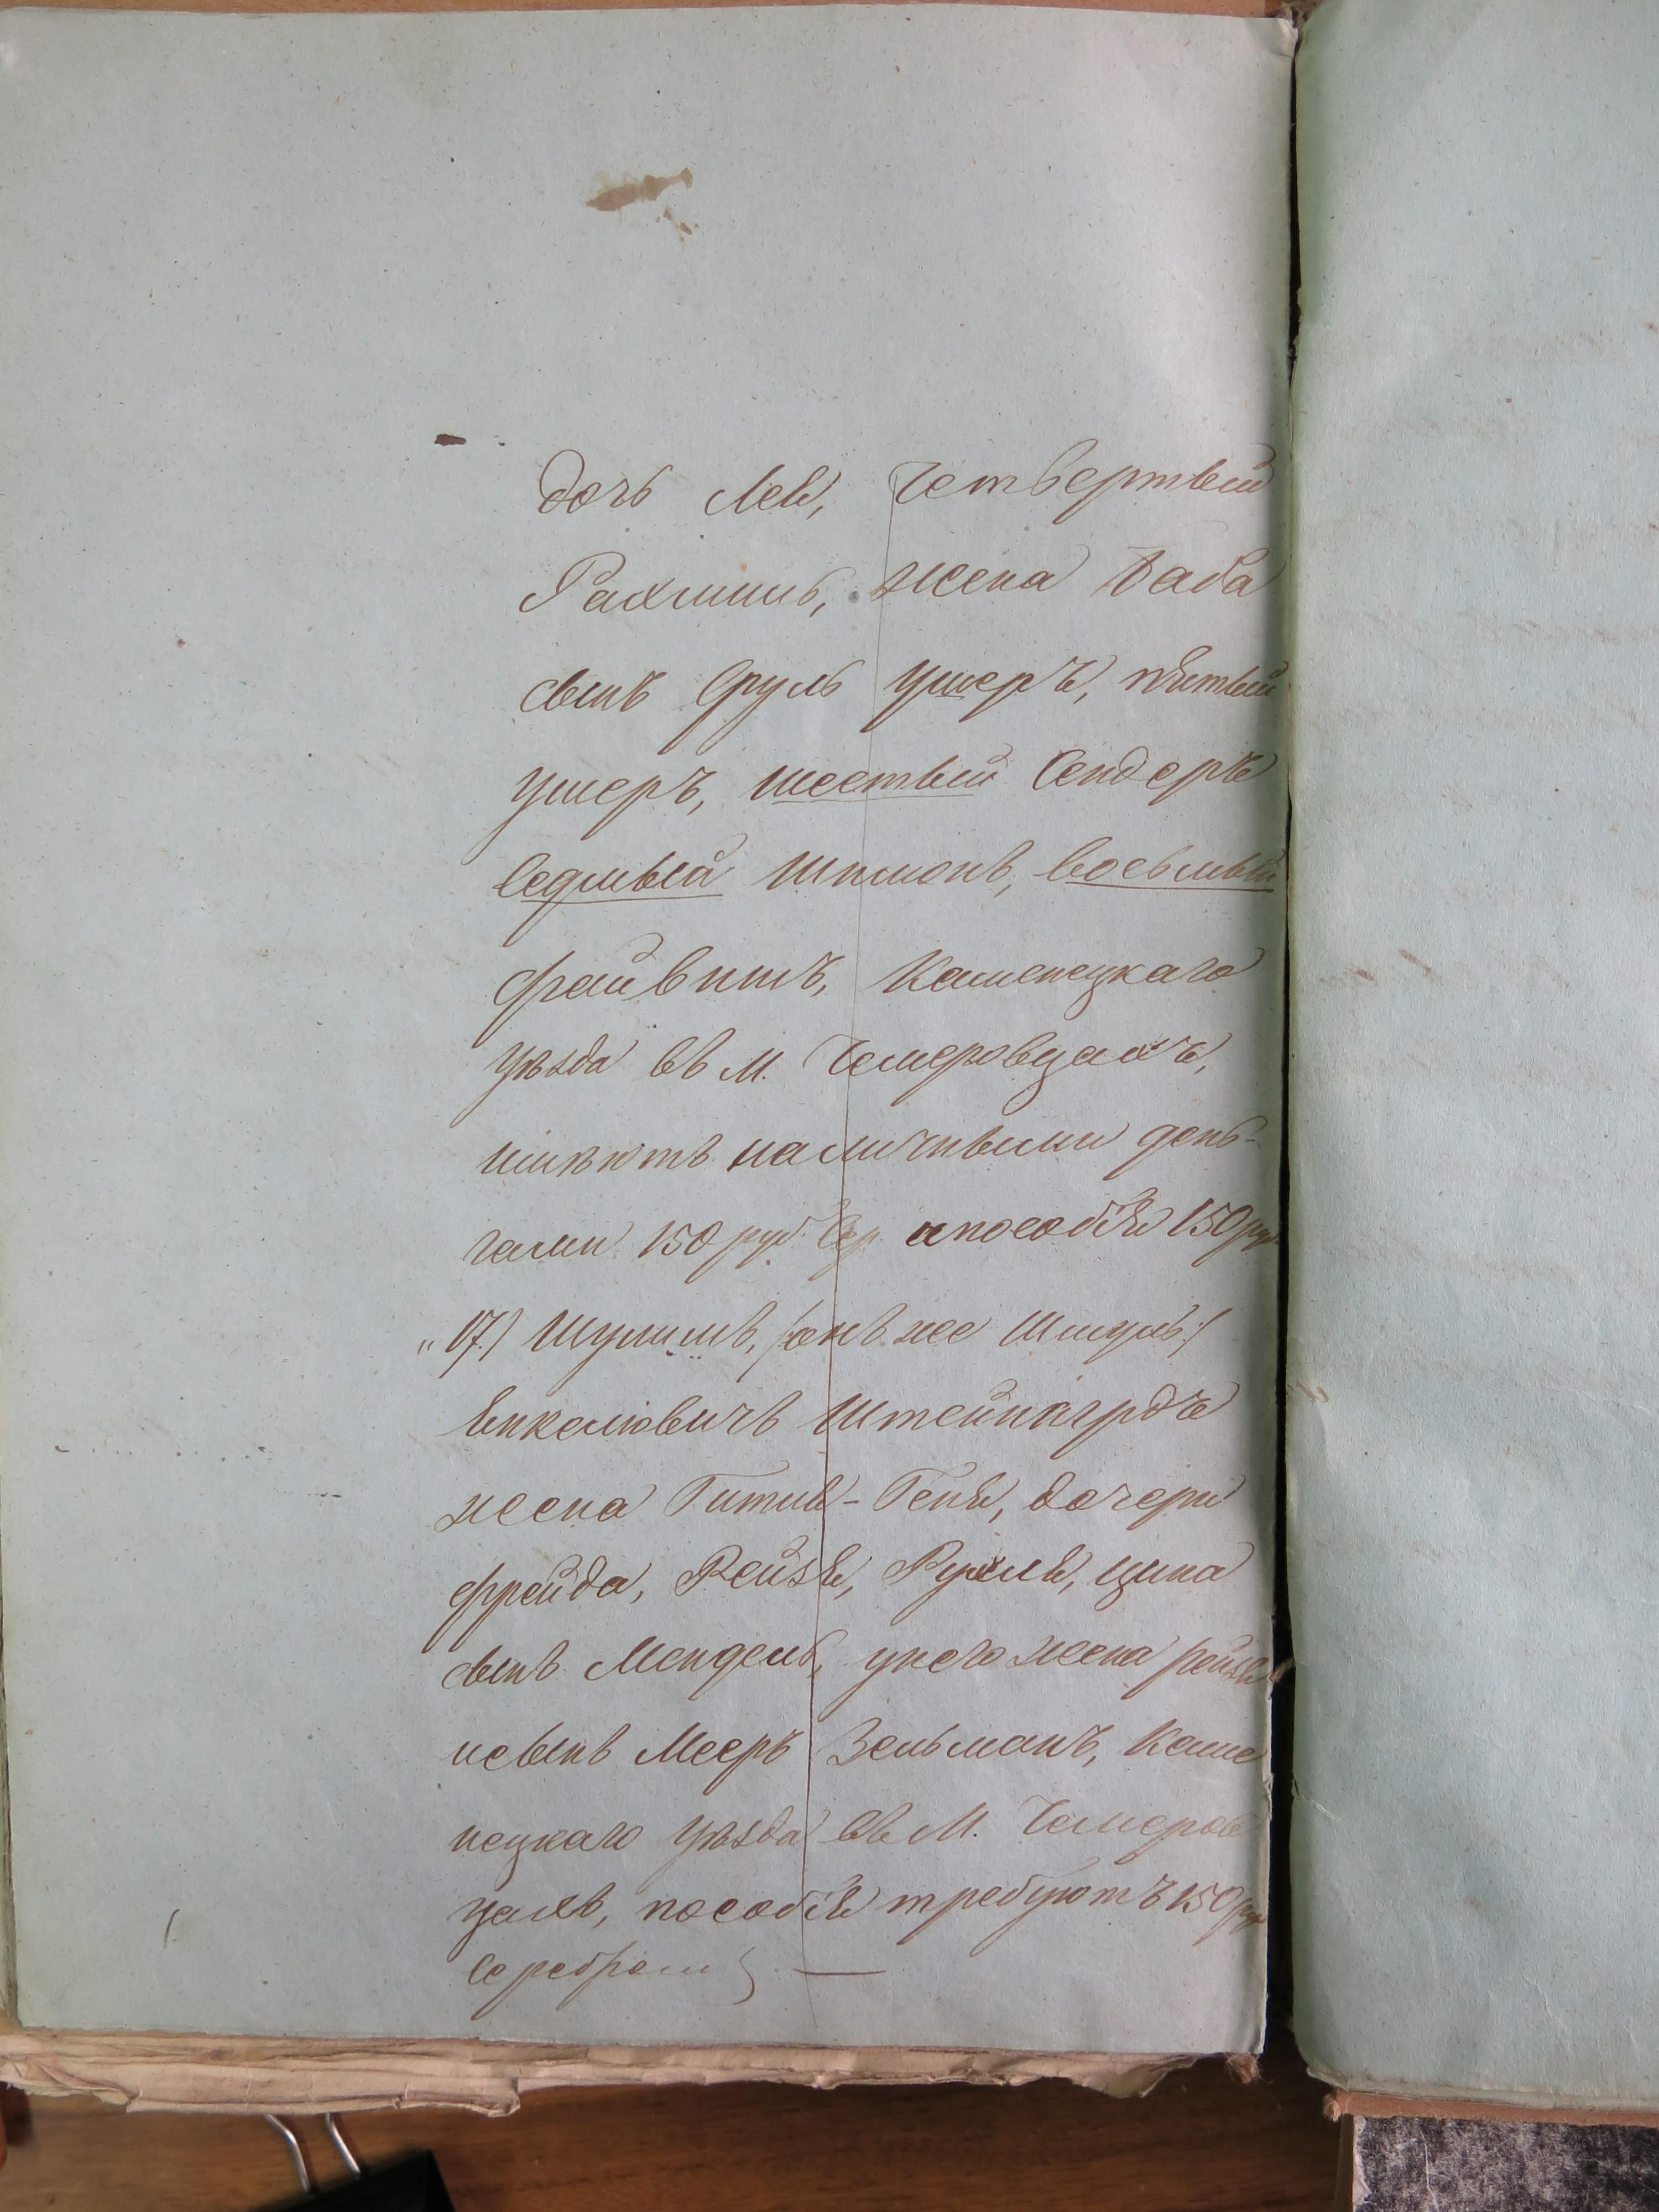 дочь Лея, четвертый
Рахмиль, жена Баба
сынъ Сруль Ушеръ, пятый
Ушеръ, шестый Сендеръ
седмый Шимонъ, восьмый
Файвишъ, Каменецкаго
уѣзда въ М. Чемеровцахъ,
имѣютъ наличными день-
гами 150 руб. Сер. а пособія 150 руб.
„17) Шулимъ, /онъ же Шмуль:/
Янкелювичъ Штейнгардъ
жена Гитля-Геня, дочери
Фрейда, Рейзя, Рухля, Ципа
сынъ Мендель, у него жена Рейзя
и сынъ Мееръ Зельманъ, Каме
нецкаго уѣзда въ М. Чемеров
цахъ, пособія требуютъ 150 руб
Серебромъ. —